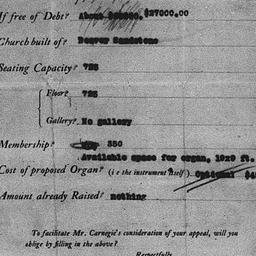 If free of Debt? About $27000.00
Church built of? Denver Sandstone
Seating Capacity? 725
Floor? 725
Gallery? No gallery
Membership? 350
Available space for organ, 19x9 ft.
Cost of proposed Organ? (i e the instrument itself) Optional $4
Amount already Raised? nothing
To facilitate Mr. Carnegie's consideration of your appeal, will you
oblige by filling in the above?
Respectfully